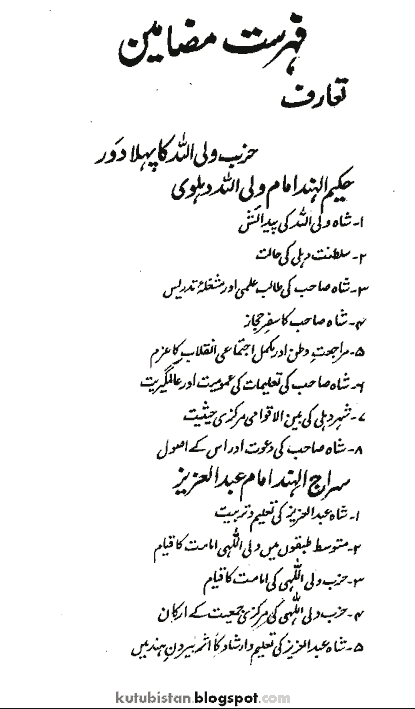 فہرست مضامین
تعارف
حزب ولی اللہ کا پہلا دَور
حکیم الہند امام ولی اللہ دہلوی
۱۔ شاہ ولی اللہ کی پیدائش
۲۔ سلطنت دہلی کی حالت
۳۔ شاہ صاحب کی طالب علمی اور مشغلۂ تدریس
۴۔ شاہ صاحب کا سفرِ حجاز
۵۔ مراجعتِ وطن اور مکمل اجتماعی انقلاب کا عزم
۶۔ شاہ صاحب کی تعلیمات کی عمومیت اور عالمگیریت
۷۔ شہر دہلی کی بین الاقوامی مرکزی حیثیت
۸۔ شاہ صاحب کی دعوت اور اس کے اصول
سراج الہند امام عبدالعزیز
۱۔ شاہ عبدالعزیز کی تعلیم و تربیت
۲۔ متوسط طبقوں میں ولی اللّٰہی امامت کا قیام
۳۔ حزب ولی اللّٰہی کی امامت کا قیام
۴۔ حزب ولی اللّٰہی کی مرکزی جمعیت کے ارکان
۵۔ شاہ عبدالعزیز کی تعلیم و ارشاد کا اثر بیرونِ ہند میں
kutubistan.blogspot.com